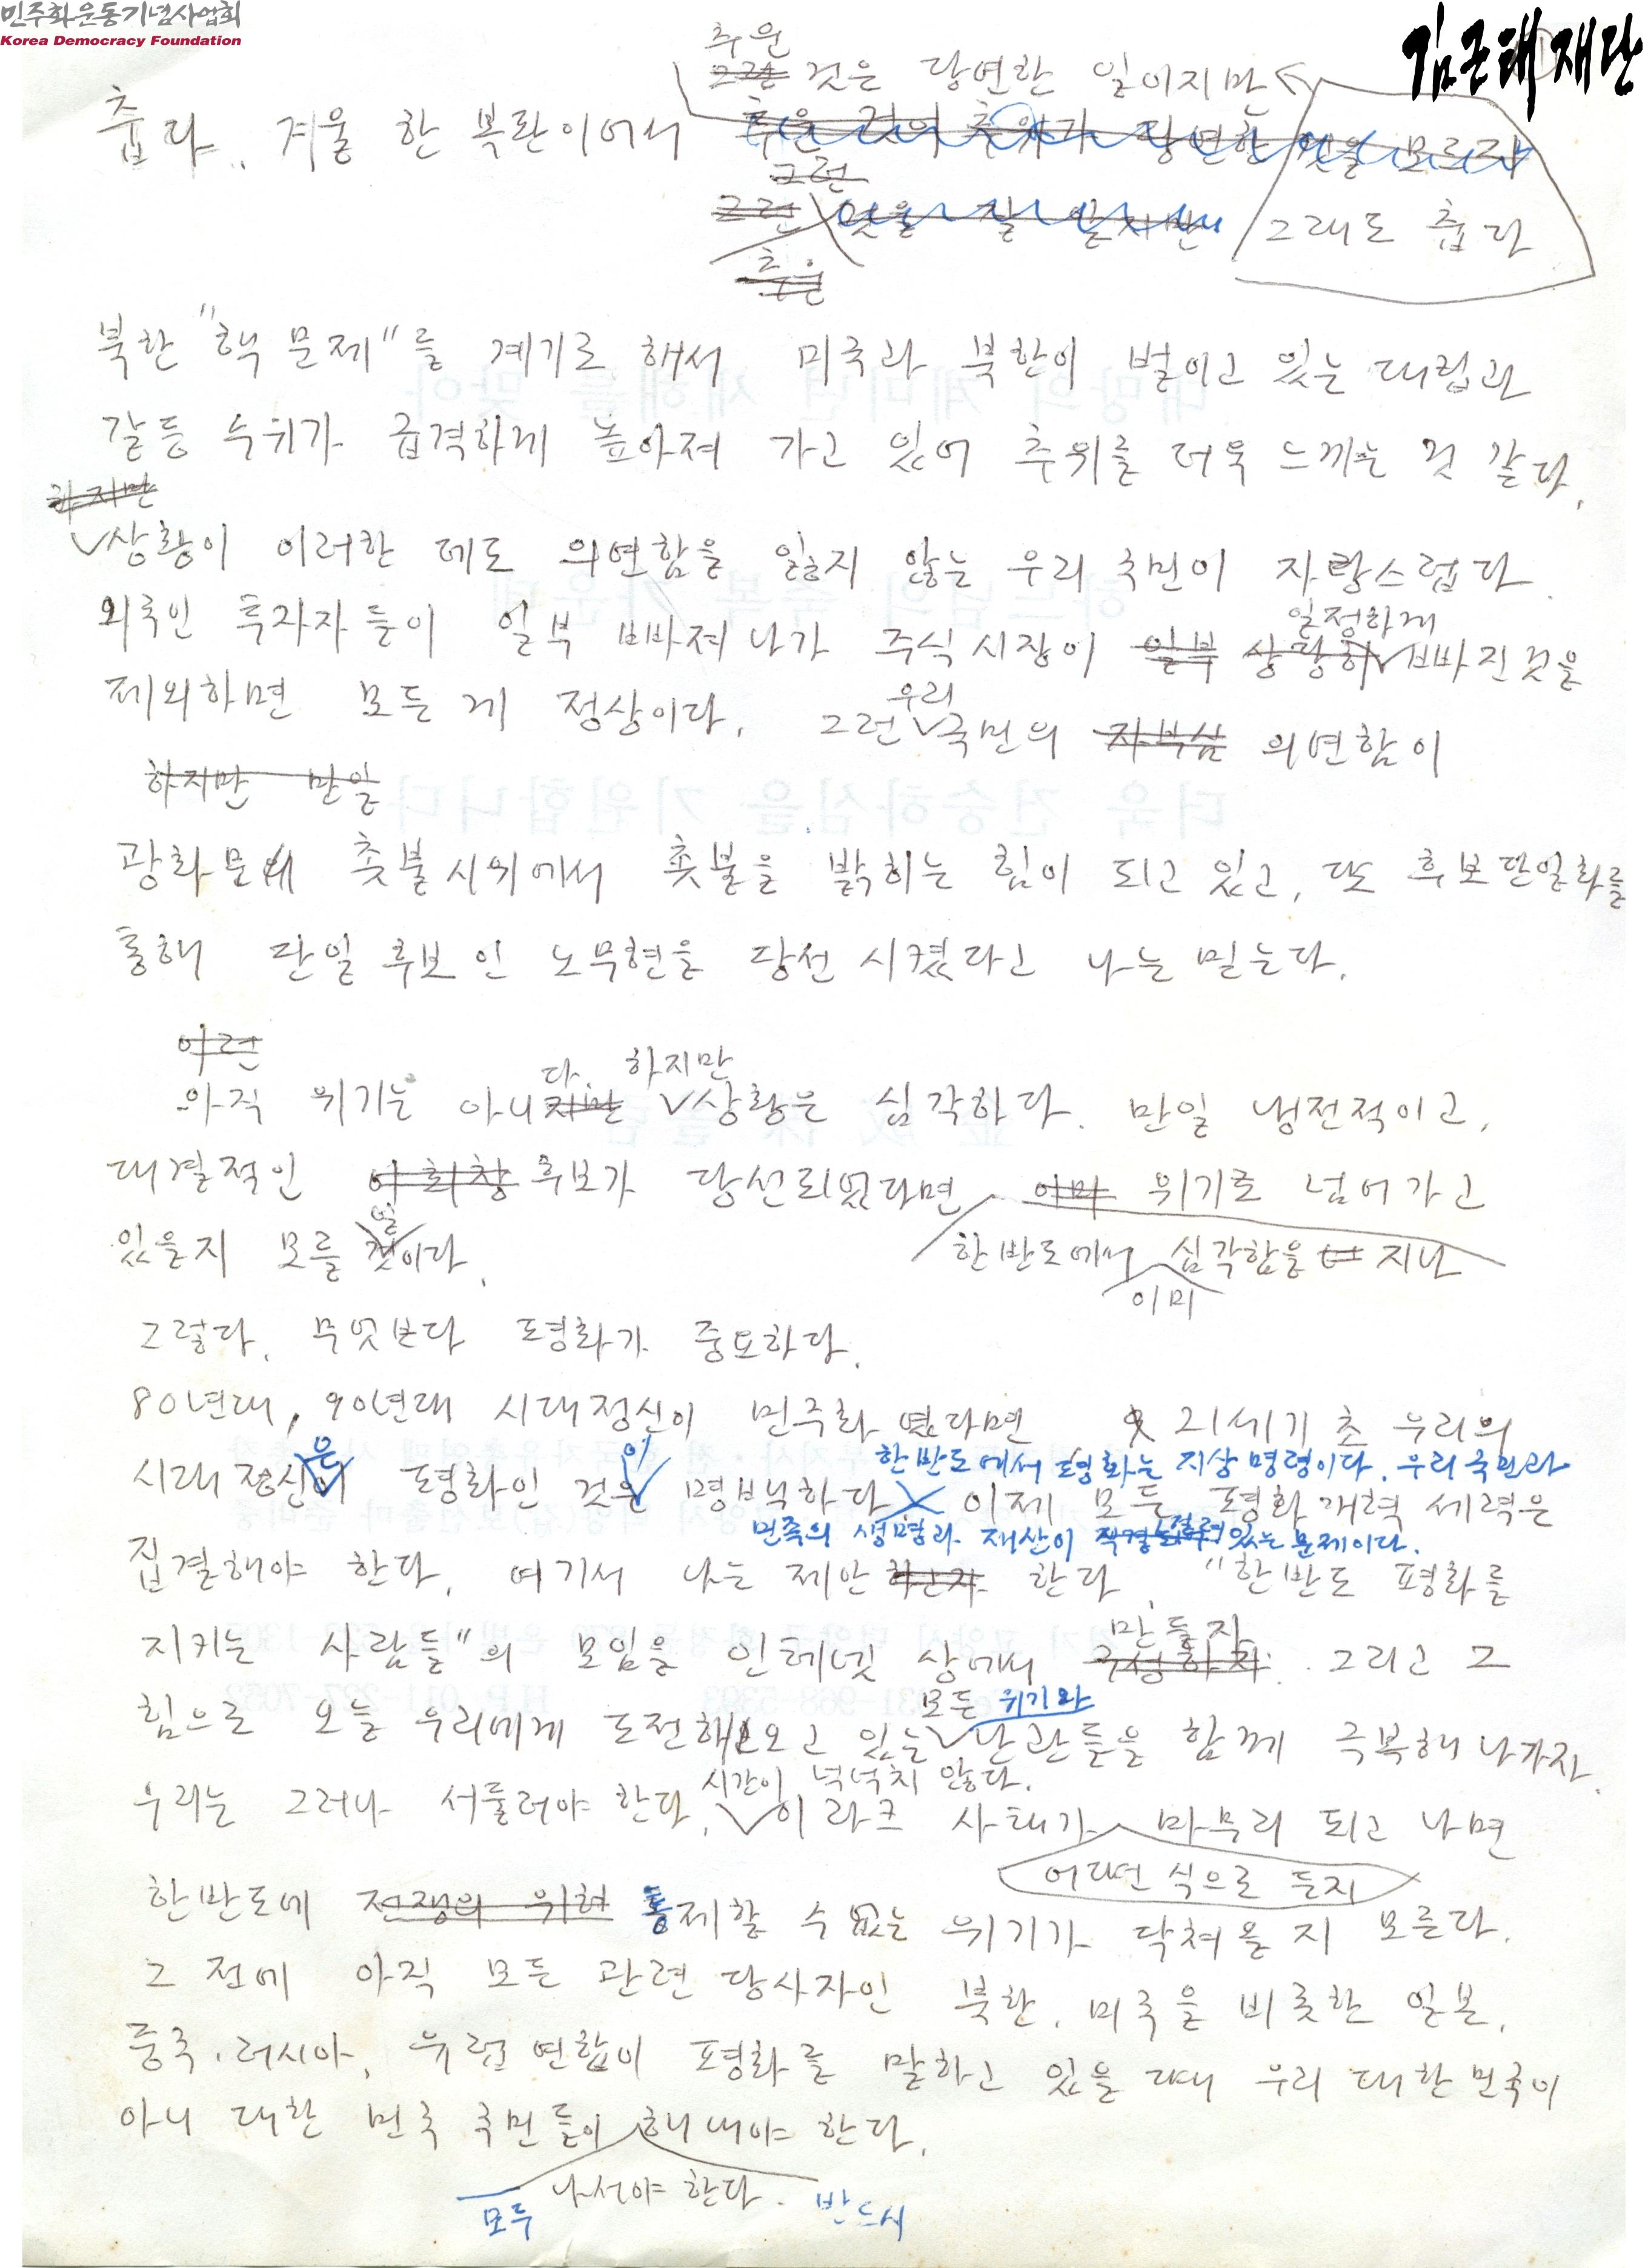 민주화운동기념사업회
Korea Democracy Foundation
김근태재단
추운
그런 것은 당연한 일이지만
춥다. 겨울 한 복판이어서 추운 것이 추위가 당연한 것을 모르자
그런
그런 것을 잘 알지만 그래도 춥다
추운
북한 "핵 문제"를 계기로 해서 미국과 북한이 벌이고 있는 대립과
갈등 수위가 급격하게 높아져 가고 있어 추위를 더욱 느끼는 것 같다.
하지만
상황이 이러한 데도 의연함을 잃지 않는 우리 국민이 자랑스럽다.
일정하게
외국인 투자자들이 일부 빠져나가 주식시장이 일부 상당히 빠진것을
우리
제외하면 모든 게 정상이다. 그런 국민의 자부심 의연함이
하지만 만일
광화문에 촛불시위에서 촛불을 밝히는 힘이 되고 있고, 또 후보단일화를
통해 단일 후보인 노무현을 당선 시켰다고 나는 믿는다.
이런
다. 하지만
아직 위기는 아니지만 상황은 심각하다. 만일 냉전적이고,
대결적인 이회창 후보가 당선되었다면 이미 위기로 넘어가고
일
있을지 모를 것이다.
한반도에서 심각함을 지나
이미
그렇다. 무엇보다 평화가 중요하다.
80년대, 90년대 시대정신이 민주화였다면 21세기 초 우리의
은 이 한반도에서 평화는 지상명령이다. 우리 국민과
시대정신이 평화인 것은 명백하다. 이제 모든 평화개혁 세력은
민족의 생명과 재산이 직결 걸려 있는 문제이다.
집결해야 한다. 여기서 나는 제안 하고자 한다. "한반도 평화를
만들자
지키는 사람들"의 모임을 인테넷 상에서 구성하자. 그리고 그
모든 위기와
힘으로 오늘 우리에게 도전해 오고 있는 난관들을 함께 극복해 나가자.
시간이 넉넉치 않다.
우리는 그러나 서둘러야 한다. 이라크 사태가 마무리 되고 나면
어떠런 식으로 든지
한반도에 전쟁의 위험 통제할 수 없는 위기가 닥쳐올 지 모른다.
그 전에 아직 모든 관련 당사자인 북한, 미국을 비롯한 일본,
중국, 러시아, 유럽 연합이 평화를 말하고 있을 때 우리 대한민국이
아니 대한 민국 국민들이 해내야 한다.
나서야 한다.
모두 반드시